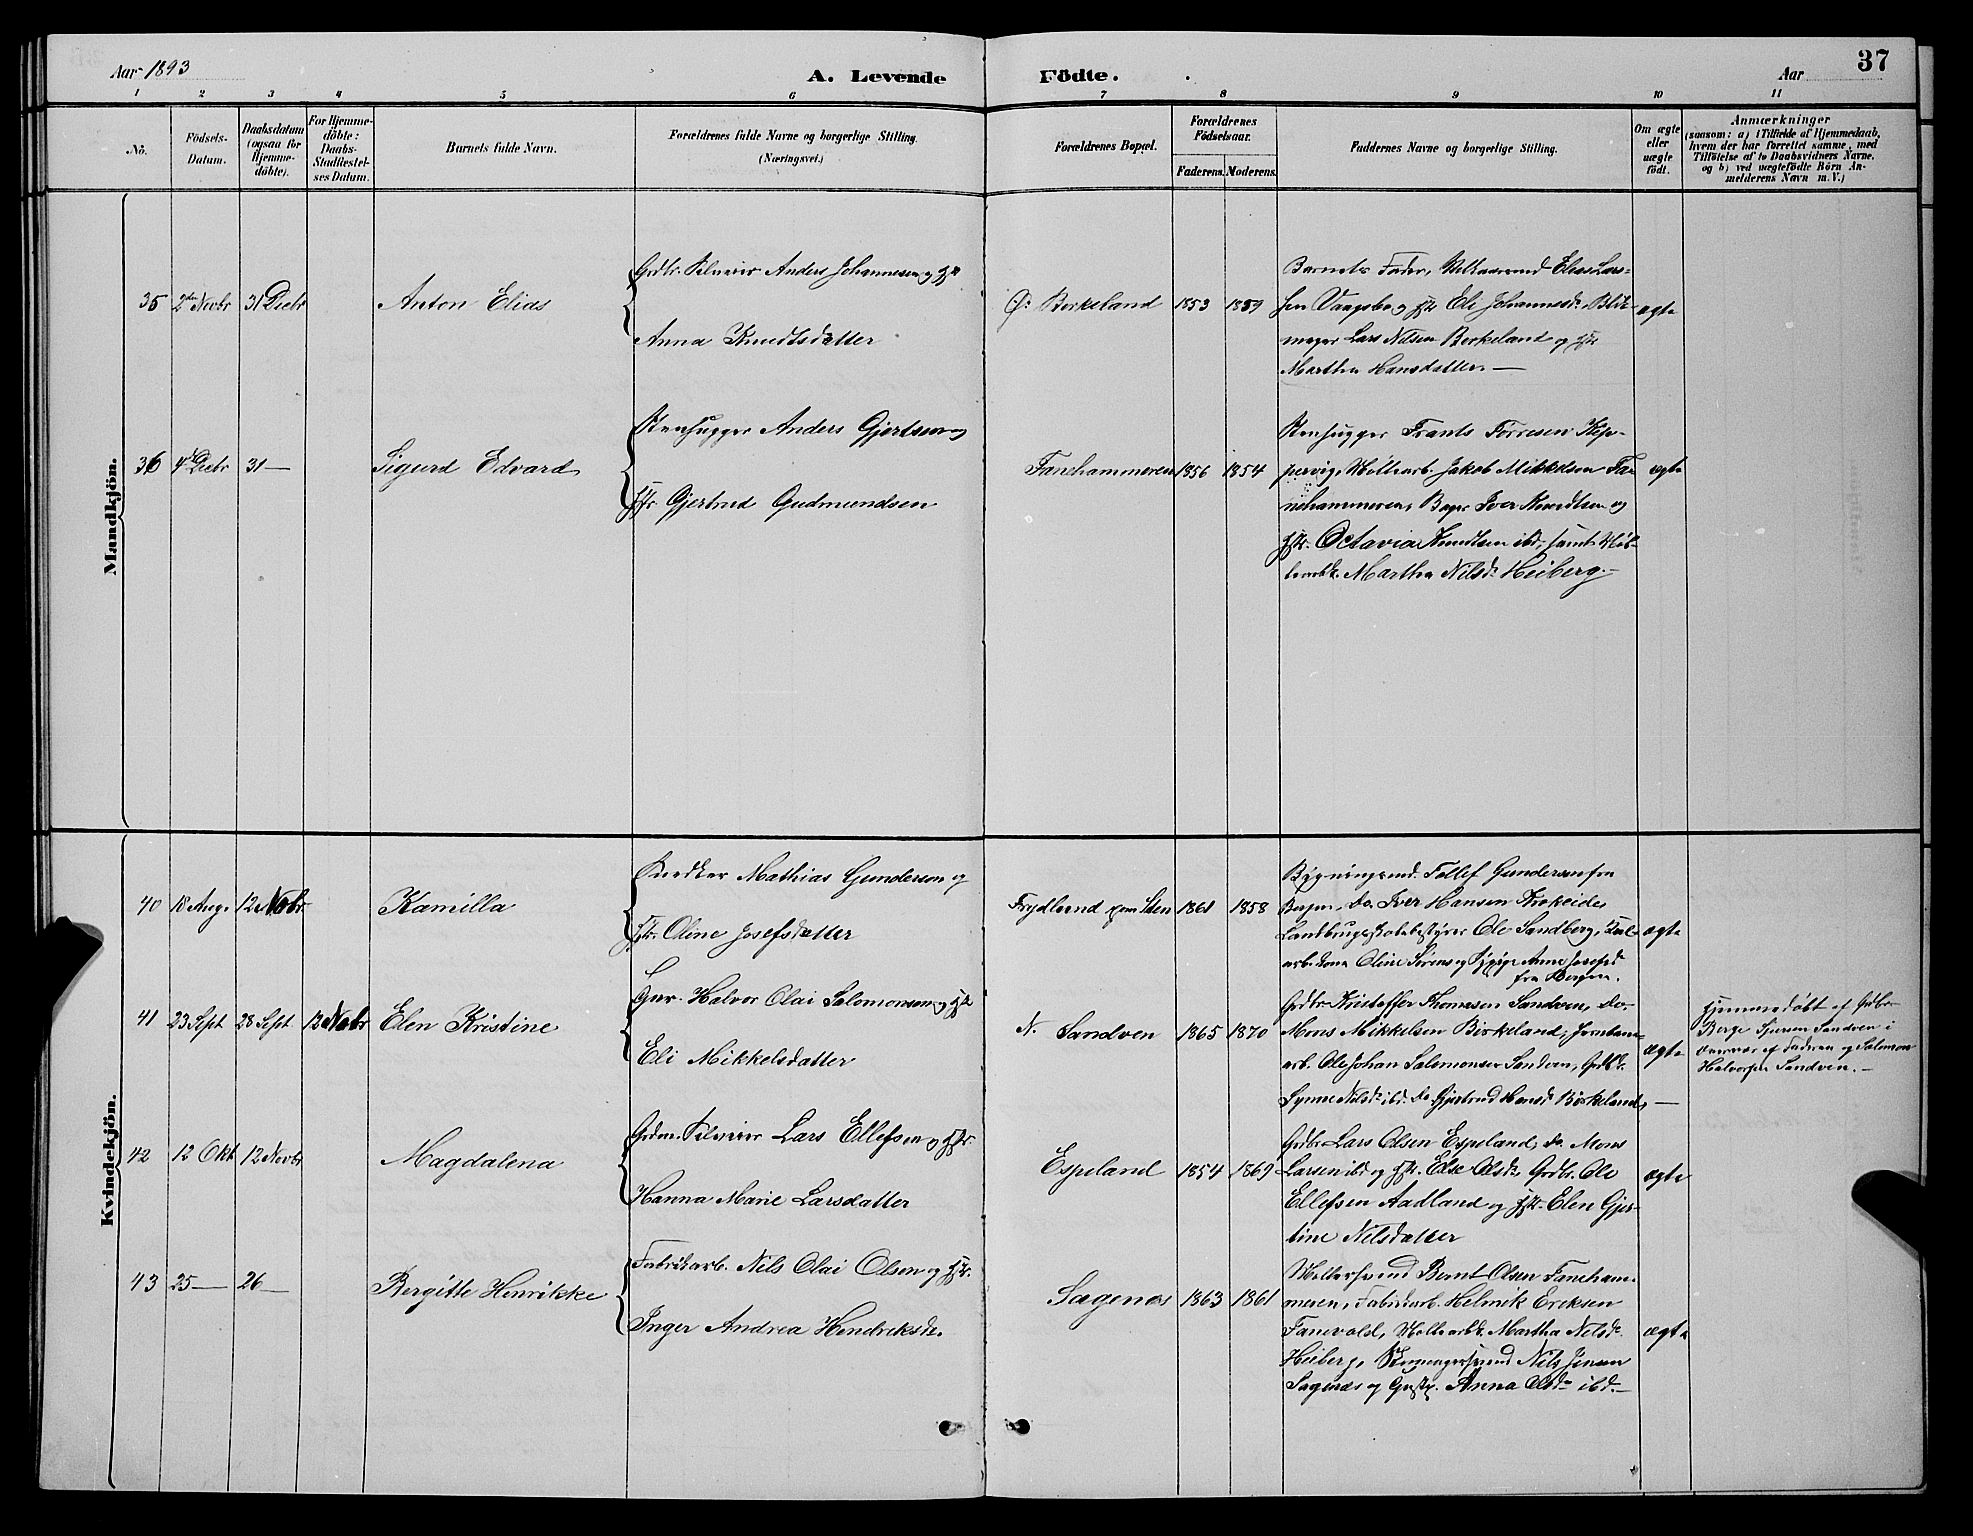 Aar 1893
A. Levende Födte.
Aar
37
1 2 3 4 5 6 7 8 9 10 11
No.
Födsels-Datum.
Daabsdatum (ogsaa for Hjemme-döbte).
For Hjemme-döbte: Daabs-Stadfæstel-ses Datum.
Barnets fulde Navn.
Forældrenes fulde Navne og borgerlige Stilling. (Næringsvei.)
Forældrenes Bopæl.
Forældrenes Födselsaar.
Faderens. Moderens.
Faddernes Navne og borgerlige Stilling.
Om ægte eller uægte födt.
Anmærkninger
(saasom: a) i Tilfælde af Hjemmedaab,
hvem der har forrettet samme, med
Tilföielse af to Daabsvidners Navne,
og b) ved uægtefödte Börn An-
melderens Navn m. V.)
Mandkjön.
35 2den Novbr 31 Decbr Anton Elias
Anders Johannesen og Hu
Anna Knudtsdatter
Ø. Birkeland 1853 1859
Barnets Fader, Elias Lars-
sen Vaagsbø og Hu Eli Johannesdr, Blok-
mager Lars Nilsen Birkeland og Hu
Martha Hansdatter. —
ægte
36 4 Decbr 31 — Sigurd Edvard
Stenhugger Anders Gjertsen og
Hu Gjertrud Gudmundsen
Fanehammeren 1856 1854
Stenhugger Frants Torresen Kop-
pervig, Jakob Mikkelsen Fa-
nehammeren, Bager Iver Knudtsen og
Hu. Octavia Knudtsen ibd, samt
Martha Nilsdr Heiberg. —
ægte
Kvindekjön.
40 18 Aug. 12 Novbr Kamilla
Snedker Mathias Gundersen og
Hu. Oline Josefsdatter
Frydlund 1861 1858
Bygningssnd. Tellef Gundersen fra
Bergen, Do. Iver Hansen Krokeide,
Landbrugsskolebestyrer Ole Sandberg,
Oline og Pige Anne Josefsdr
fra Bergen.
ægte
41 23 Sept 28 Sept 12 Novbr Elen Kristine
Halvor Olai Salomonsen og Hu
Eli Mikkelsdatter
N. Sandven 1865 1870
Grdbr. Kristoffer Thomassen Sandven, Do.
Mons Mikkelsen Birkeland, Jernbane-
arb. Ole Johan Salomonsen Sandven,
Synne Nilsdr ibd. Do Gjertrud Hansdr Birkeland, —
ægte
Hjemmedöbt af Grdbr.
Berge Sandven i
Overvær af Faderen og Salomon
Halvorsen Sandven. —
42 12 Okt 12 Novbr Magdalena
Lars Ellefsen og Hu.
Hanna Marie Larsdatter
Espeland 1854 1869
Grdbr. Lars Olsen Espeland, Do. Mons
Larsen ibd og Hu. Else Olsdr, Grdbr. Ole
Ellefsen Aadland og Hu. Elen Gjer-
tine Nilsdatter
ægte
43 25 — 26 — Bergitte Henrikke
Fabrikarb. Nils Olai Olsen og Hu.
Inger Andrea Hendriksdr.
Sagenes 1863 1861
Møllersvend Bernt Olsen Faneham-
meren, Fabrikarb. Helmik Eriksen
Fanevold, Martha Nilsdr.
Heiberg, Nils Jensen
Sagenes og Anna Olsdr ibd. —
ægte